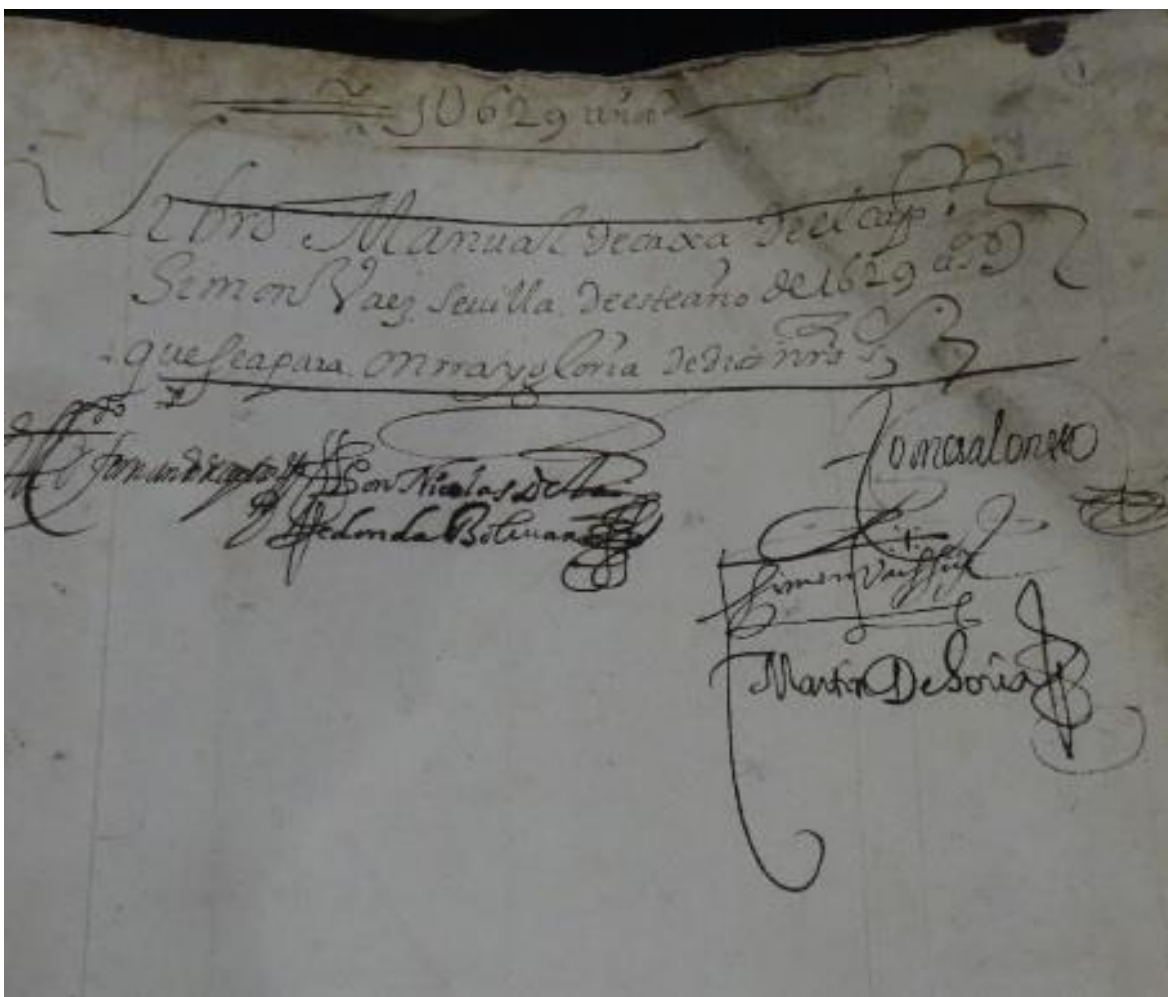 1U629 años
Libro Manual de caxa de el cap.n
Simon Vaez Seuilla de este año de 1629 as
que sea para onrra y gloria de dios nro sr
Don Nicolas De
Redonda Boliuar
Simon Vaez Seuª
Martin De Soria